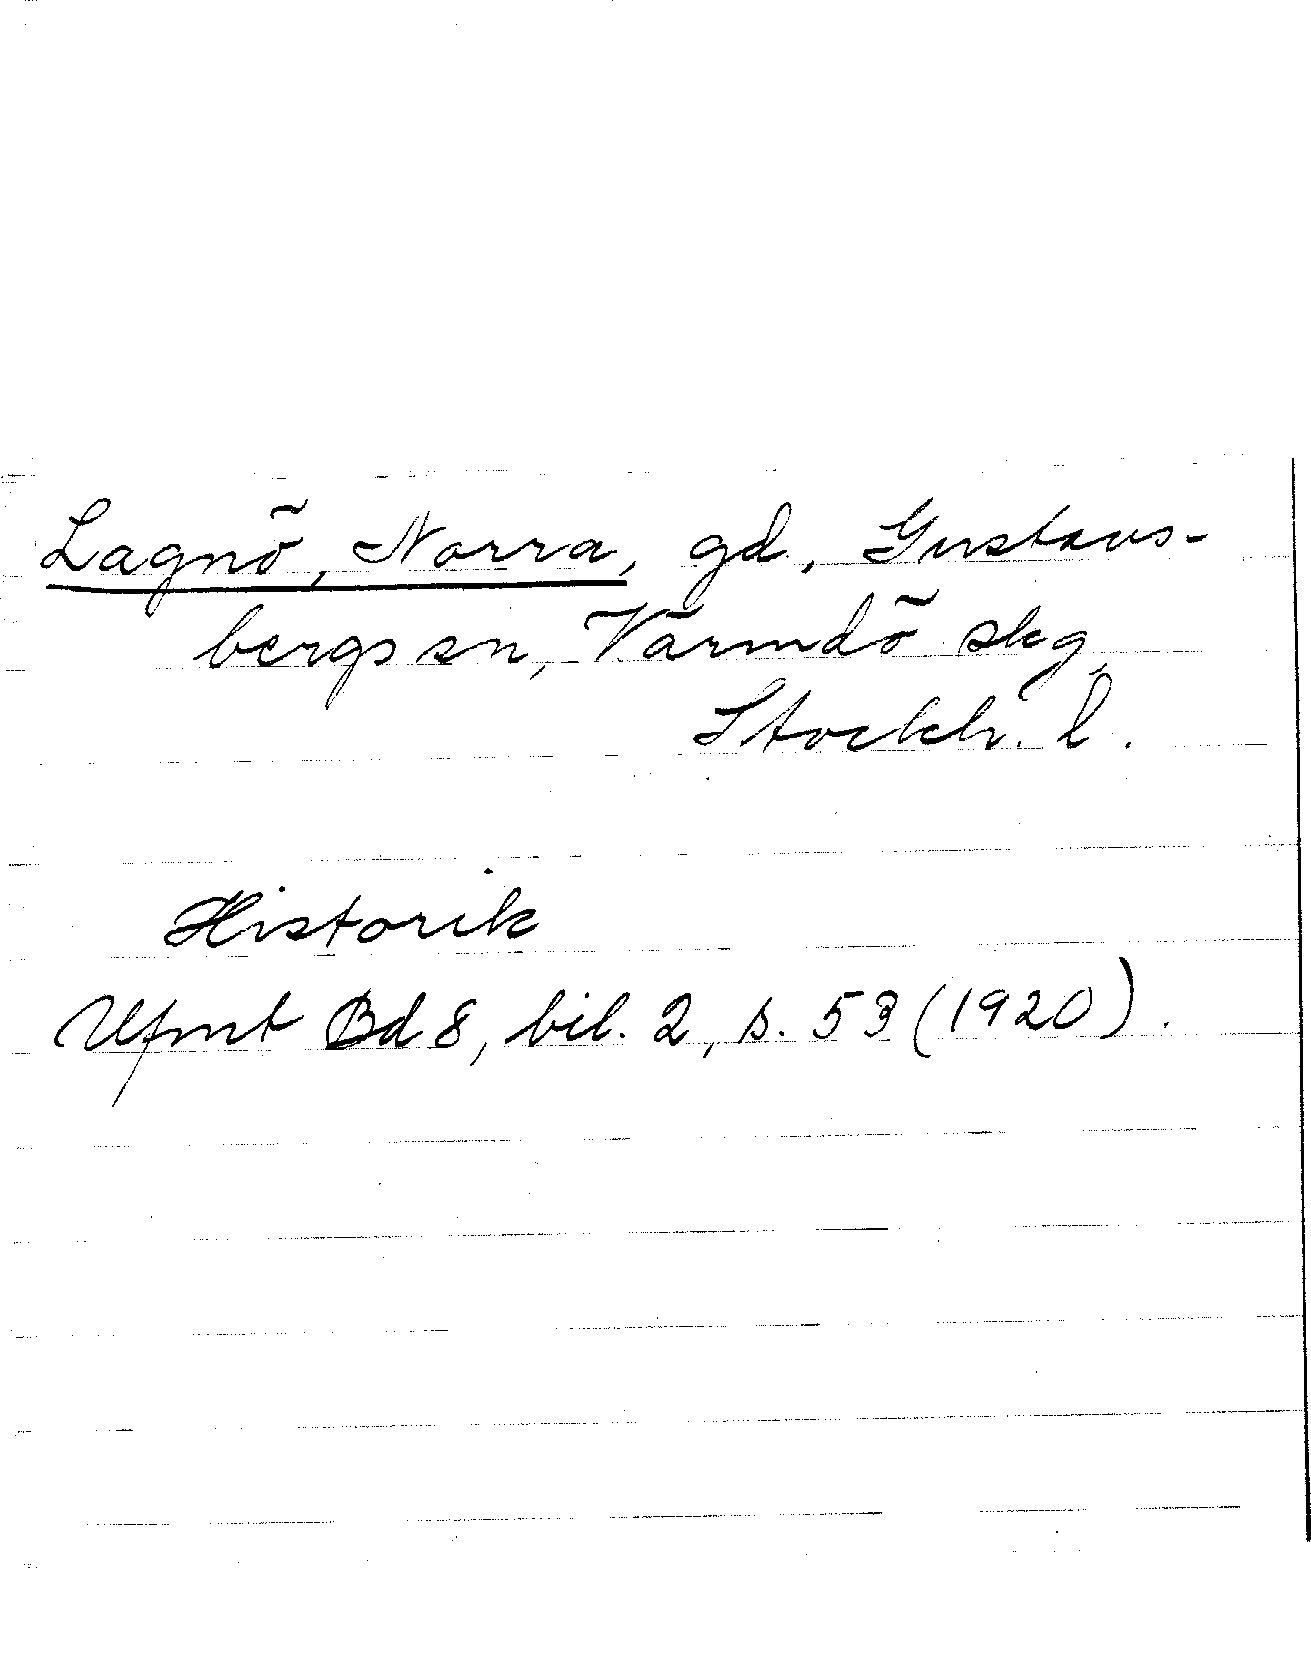 Lagnö, Norra, gd, Gustavs-
bergs sn, Värmdö skg,
Stockh. l.
Historik
Ufmt Bd 8, bil. 2, s. 53 (1920).